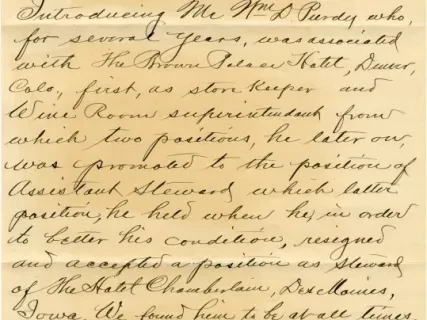 Introducing Mr Wm D Purdy who,
for several years, was associated
with The Brown Palace Hotel, Denver,
Colo, first, as store keeper and
Wine Room superintendant from
which two positions, he later on,
was promoted to the position of
Assistant Steward, which latter
position, he held when he, in order
to better his condition, resigned
and accepted a position as steward
of The Hotel Chamberlain, Des Moines,
Iowa. We found him to be at all times,